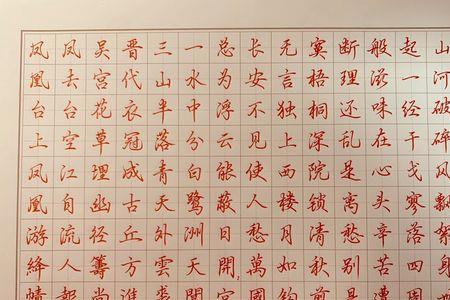 凤凰台上凤凰游絳幘
凤去台空江自流人報
吴宫花草埋幽径籌尚
晋代衣冠成古丘方進
三山半落青天外雲裘
一水中分白鹭洲天
总为浮云能蔽日開宮
长安不见使人愁萬國
无言独上西楼月如钩
寞梧桐深院锁清秋剪
断理还乱是离愁别是
般滋味在心头辛苦
起一经干戈寥落四周
山河破碎风飘絮身